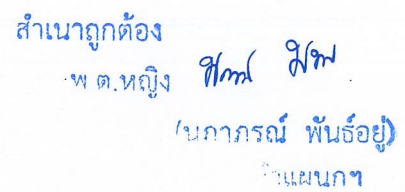 สำเนาถูกต้อง
พ.ต.หญิง
(นภาภรณ์ พันธ์อยู่)
แผนกฯ